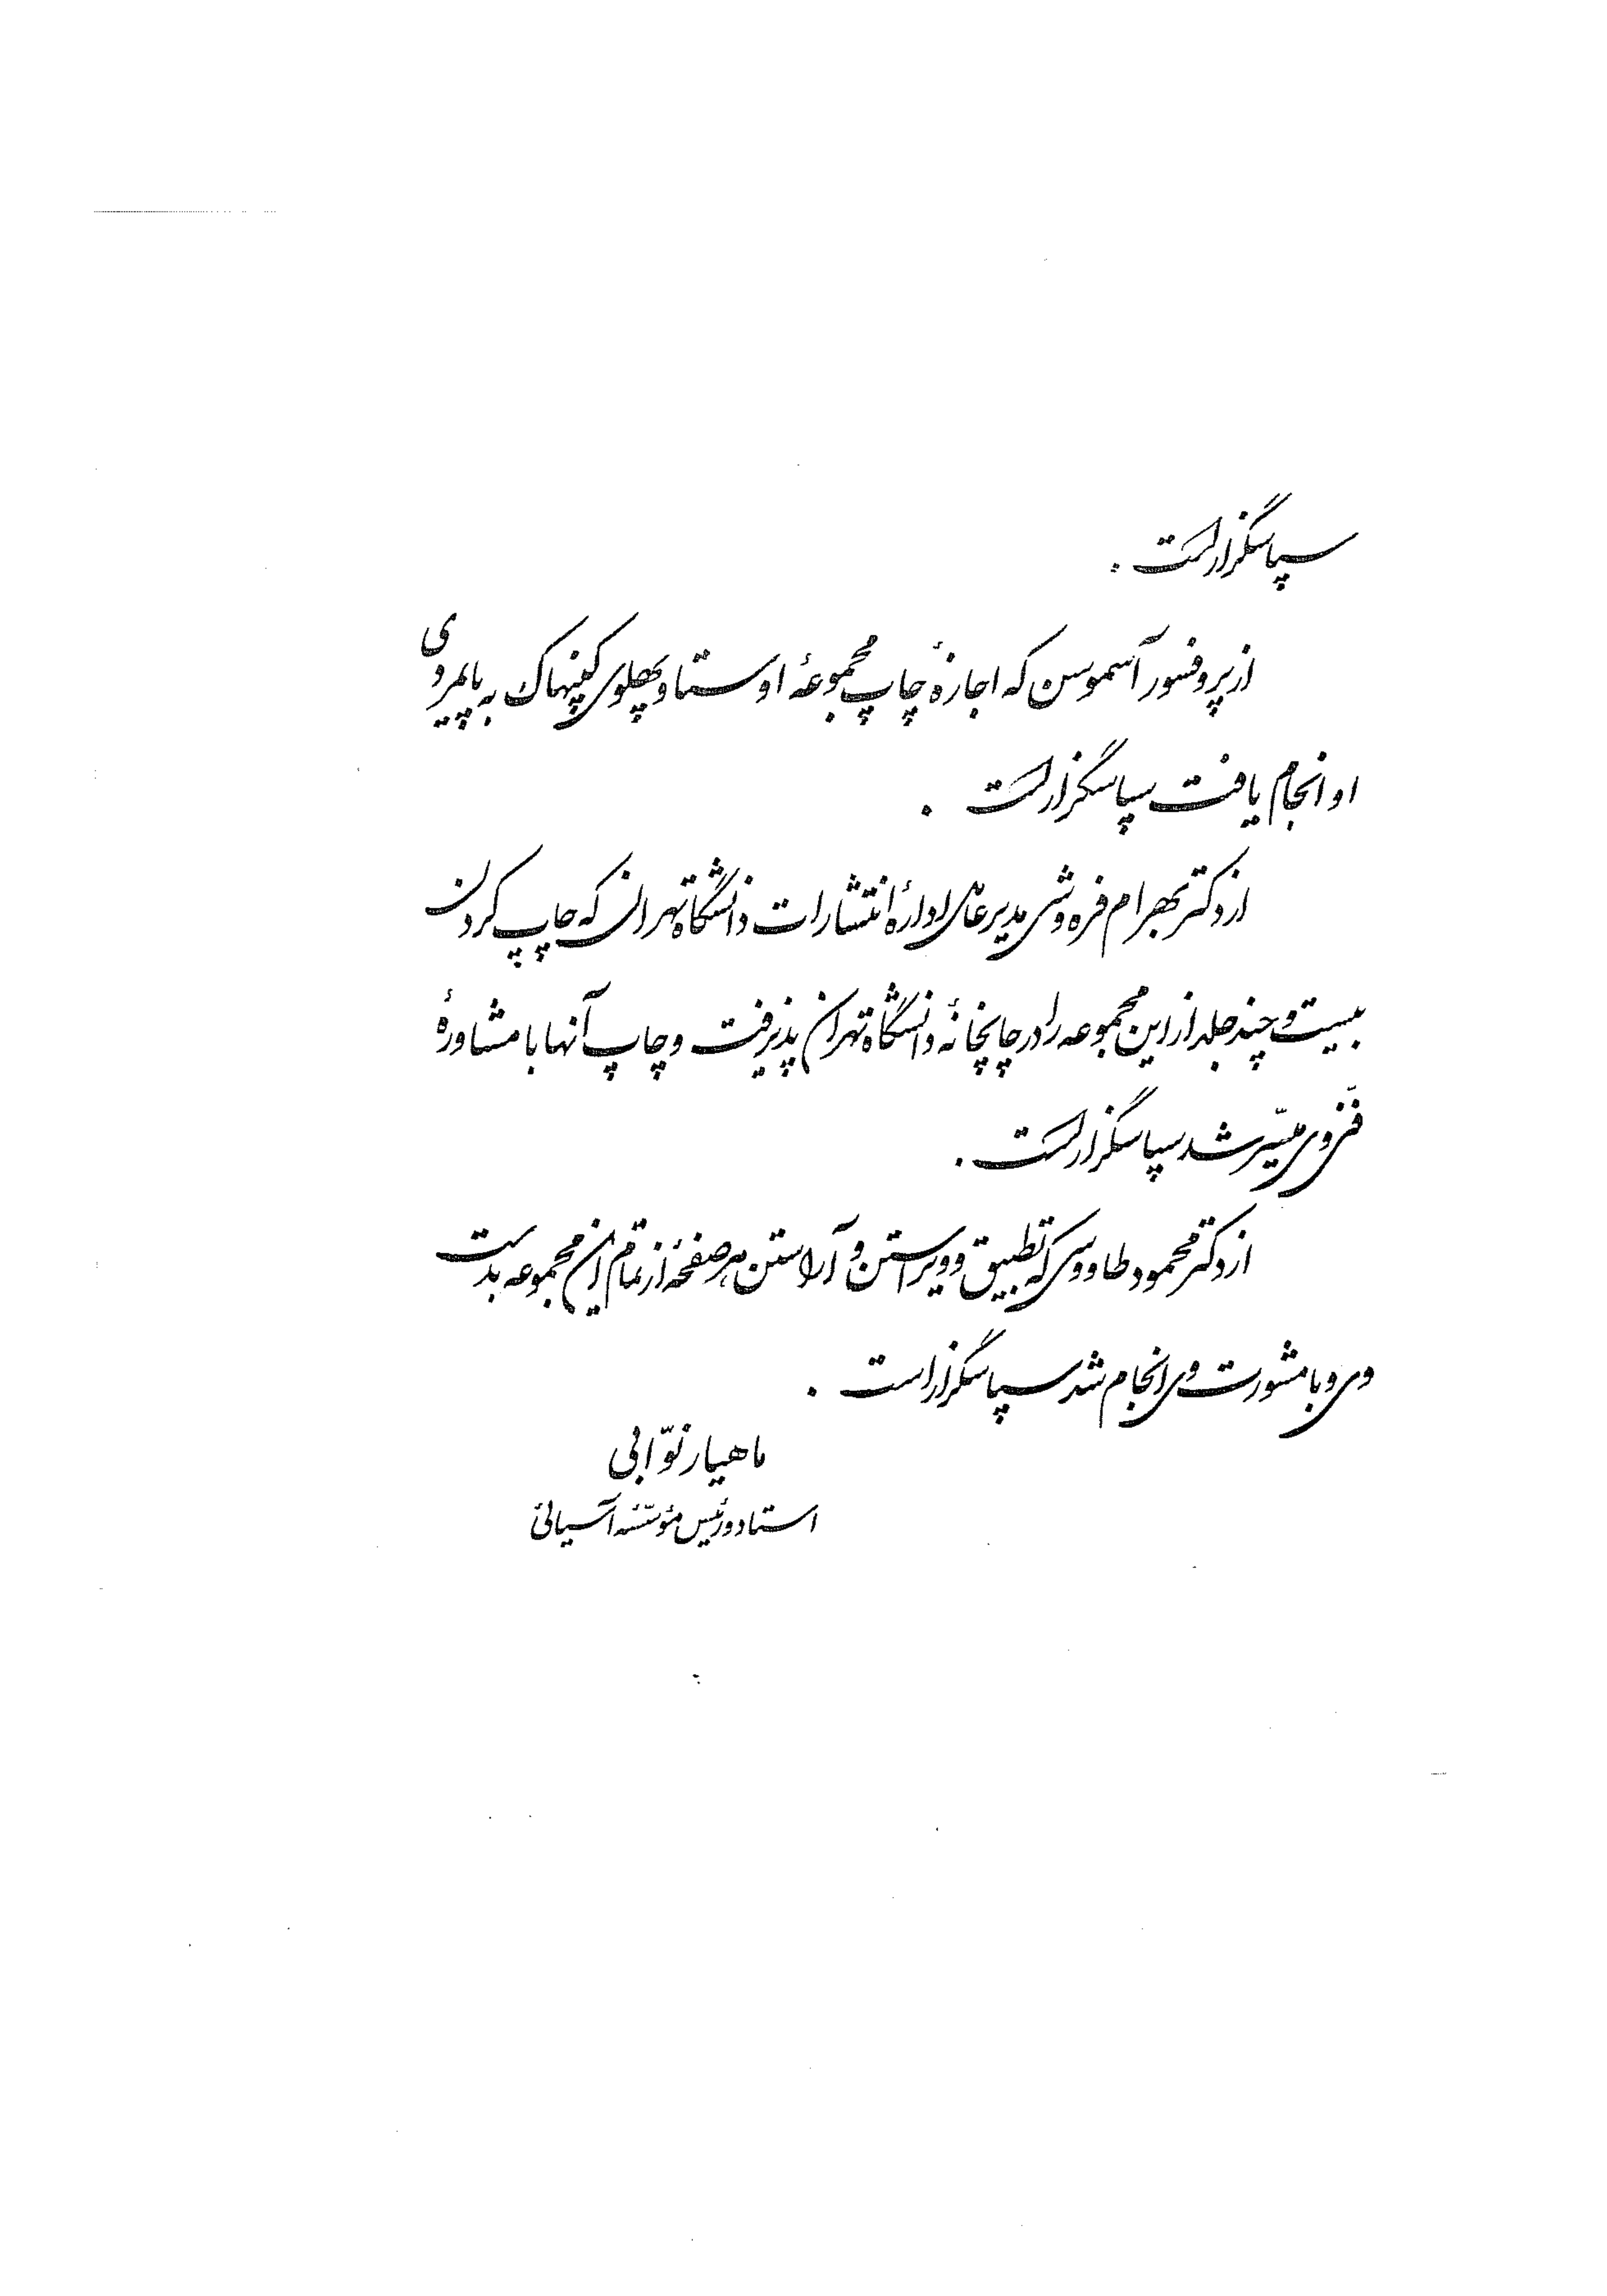 سپاسگزارست :
از پروفسور آسموسن که اجازۀ چاپ مجموعۀ اوستا و پهلوی کپنهاک به پایمردی
او انجام یافت سپاسگزارست .
از دکتر بهرام فره‌وشی مدیرعامل ادارۀ انتشارات دانشگاه تهران که چاپ کردن
بیست و چند جلد از این مجموعه را در چاپخانۀ دانشگاه تهران پذیرفت و چاپ آنها با مشاورۀ
فنّی وی میسّر شد سپاسگزارست .
از دکتر محمود طاووسی که تطبیق و ویراستن و آراستن هر صفحۀ از تمام این مجموعه بدست
وی و با مشورت وی انجام شد سپاسگزار است .
ماهیار نوّابی
استاد و رئیس مؤسّسۀ آسیائی